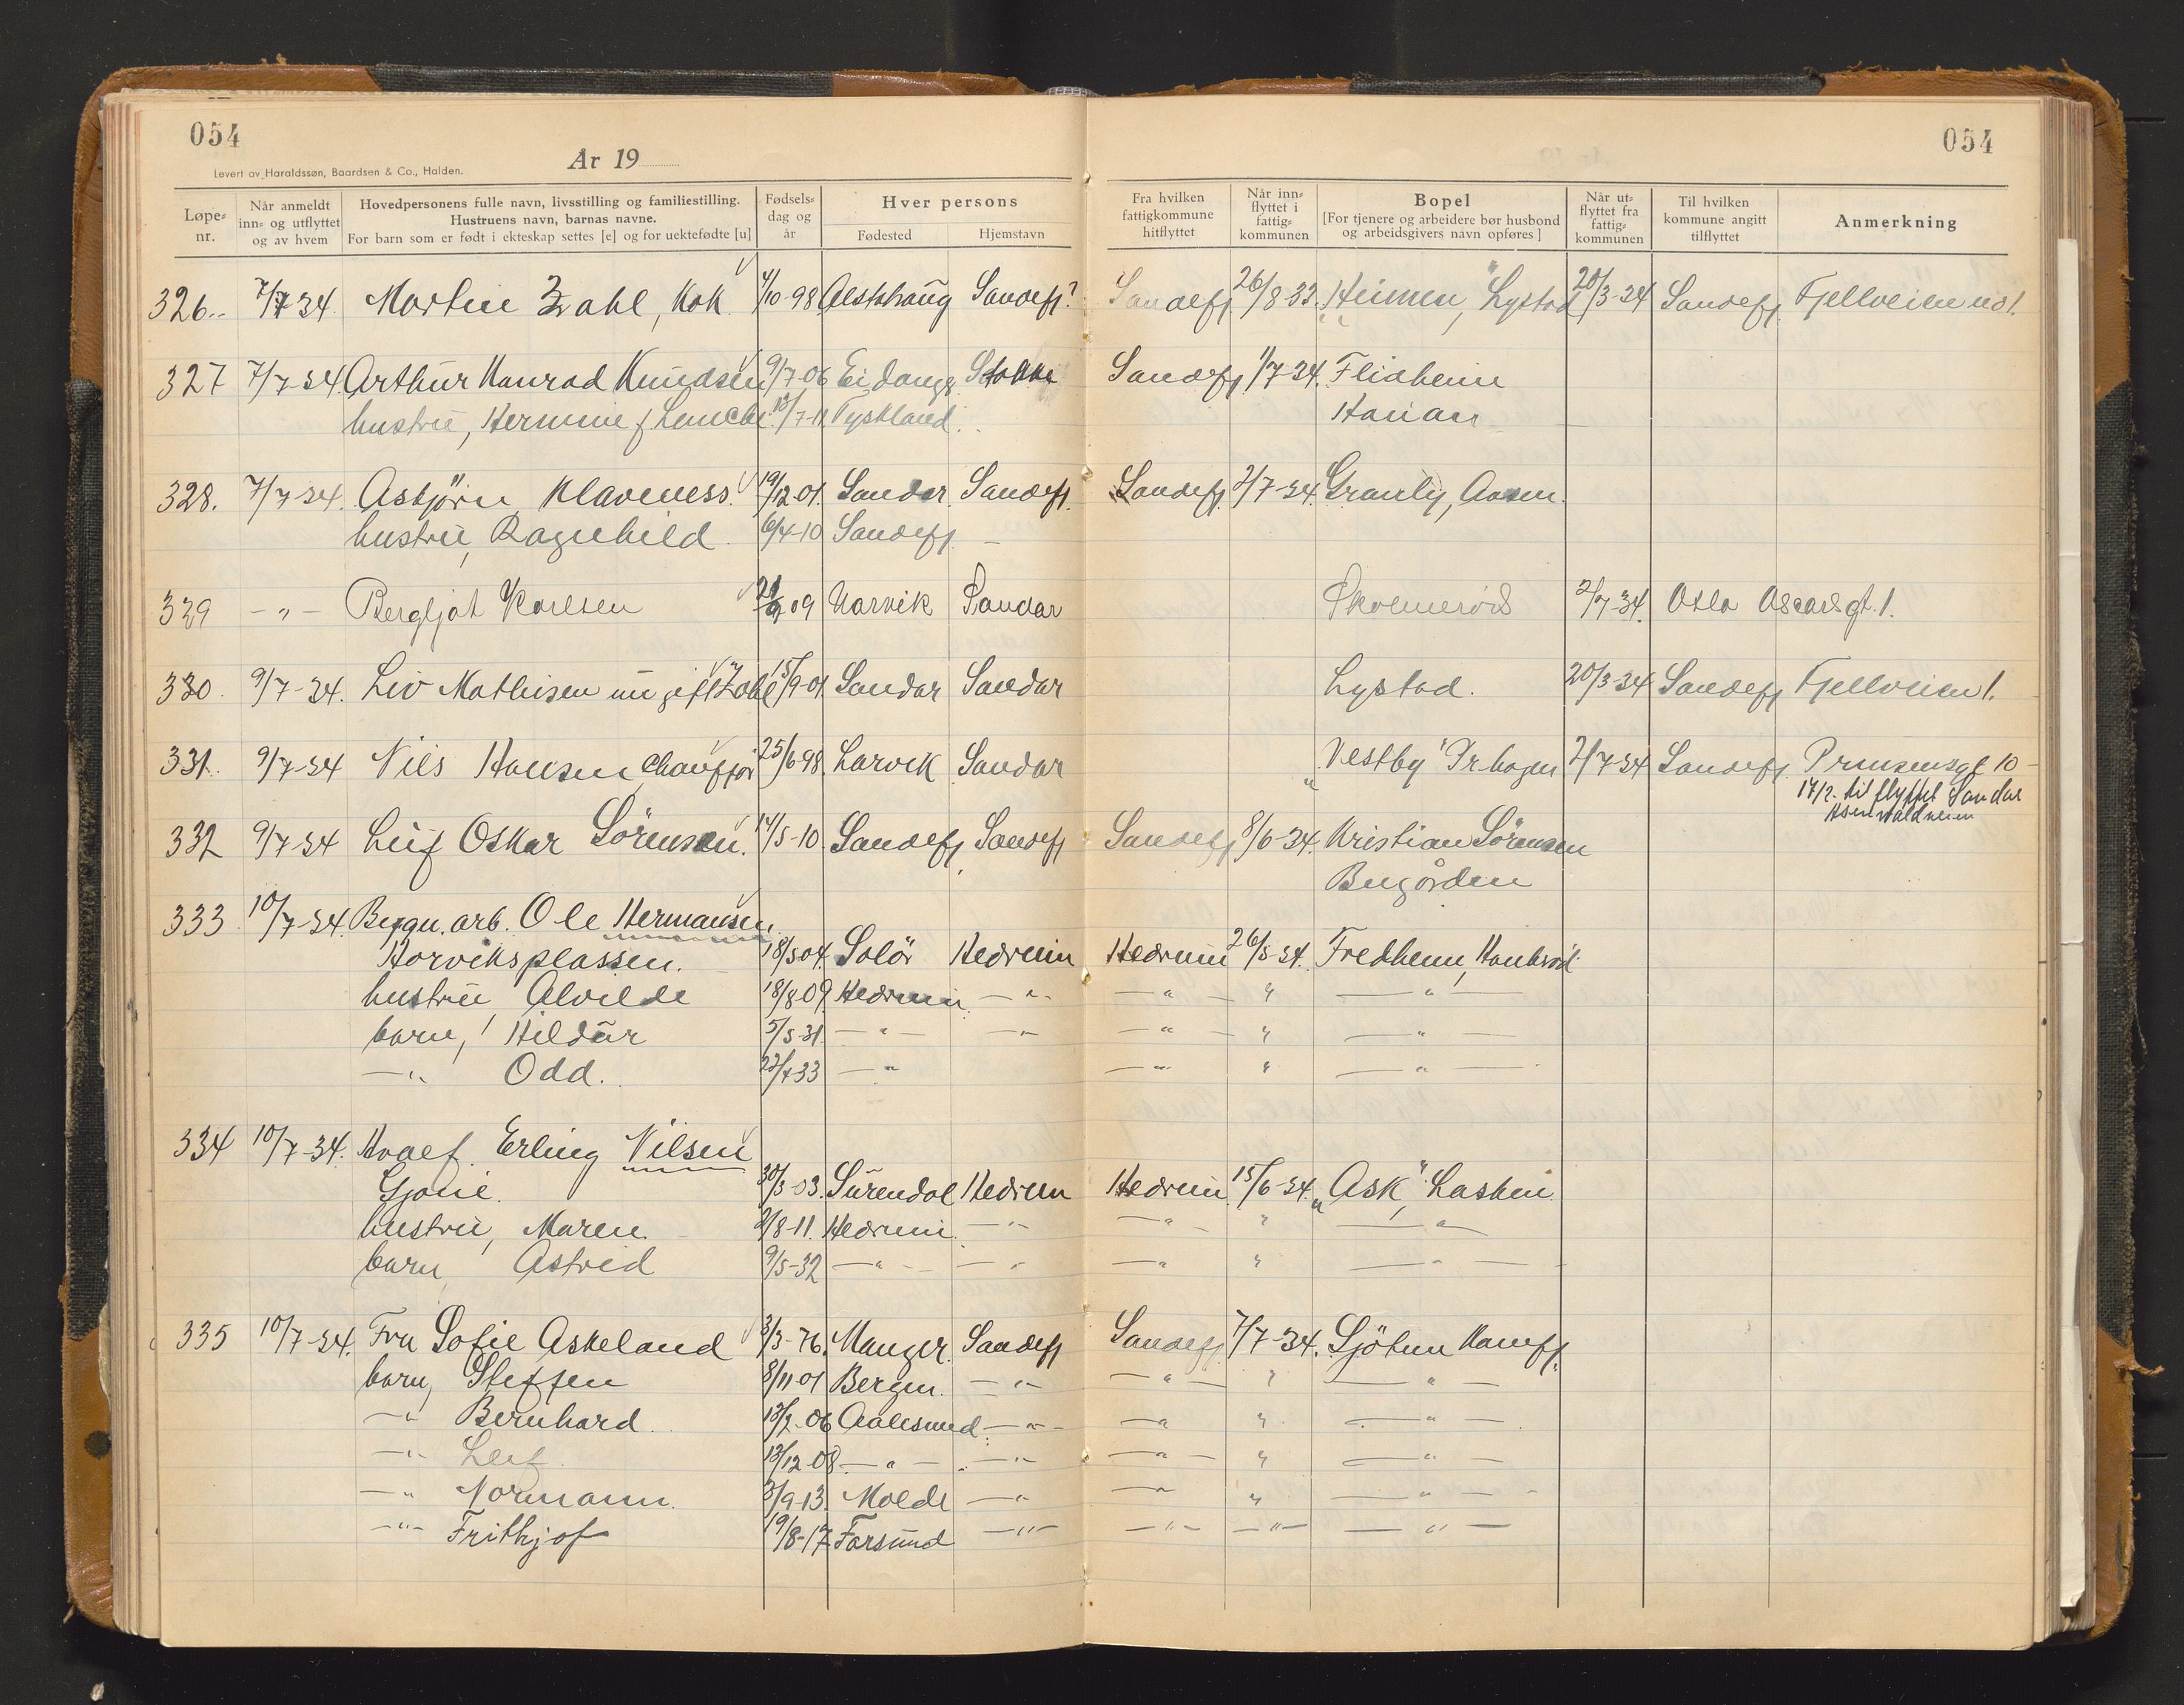 054
054
År 19
Levert av Haraldssøn, Baardsen & Co., Halden.
Løpe-nr. | Når anmeldt inn- og utflyttet og av hvem | Hovedpersonens fulle navn, livsstilling og familiestilling. Hustruens navn, barnas navne. For barn som er født i ekteskap settes [e] og for uektefødte [u] | Fødsels-dag og år | Hver persons Fødested | Hjemstavn | Fra hvilken fattigkommune hitflyttet | Når inn-flyttet i fattig-kommunen | Bopel [For tjenere og arbeidere bør husbond og arbeidsgivers navn opføres] | Når ut-flyttet fra fattig-kommunen | Til hvilken kommune angitt tilflyttet | Anmerkning
326. 7/7-34 Martin Zahl, Kok 4/10-98 Alstahaug Sandefj? Sandefj. 26/8-33. "Heimen", Lystad 20/3-34 Sandefj. Fjellveien no 1.
327 7/7-34. Arthur Konrad Knudsen 9/7-06 Eidanger Stokke Sandefj. 1/7-34. Flidheim
hustru, Hermine f. 13/7-11 Tyskland. Haslan
328. 7/7-34. Asbjörn Klaveness 19/12-01. Sandar Sandefj. Sandefj. 2/7-34. Granly, Aasen.
hustru, Ragnhild 6/4-10 Sandefj. -
329 -"- Bergljot Karlsen 09 Narvik Sandar 2/7-34. Oslo Oscarsgt. 1.
330. 9/7-34. Liv Mathisen nu gift Zahl 15/9-01 Sandar Sandar Lystad. 20/3-34 Sandefj. Fjellveien 1.
331. 9/7-34 Nils Hansen, Chauffør 25/6-98. Larvik Sandar "Vestby" Pr.hagen 2/7-34 Sandefj. Prinsensgt 10
17/2. tilflyttet Sandar
332 9/7-34 Leif Oskar Sörensen. 14/5-10. Sandefj. Sandefj. Sandefj. 8/6-34. Kristian Sörensen
Bugården
333 10/7-34. Bergv. arb. Ole Hermansen
Horviksplassen. 18/5 04. Solör Hedrum Hedrum 26/5-34. Fredheim, Haukeröd
hustru Alvilde 18/8 09. Hedrum -"- -"- " -"-
barn, Hildur 5/5-31 -"- -"- -"- " -"-
-"- Odd. 22/4 33 -"- -"- " -"-
334 10/7-34. Hvalf. Erling Nilsen
30/3-03. Surendal Hedrum Hedrum 15/6-34. "Ask", Lasken
hustru, Maren 2/8-11. Hedrum -"- -"- " -"-
barn Astrid 9/5-32 -"- -"- -"- " -"-
335 10/7-34. Fru Sofie Askeland 3/3-76. Manger. Sandefj. Sandefj. 7/7-34. Sjötun Kamfj.
barn, Steffen 8/11-01 Bergen. -"- -"- " -"-
-"- Bernhard 13/2-06 Aalesund -"- -"- " -"-
-"- Leif 13/12-08 -"- -"- -"- " -"-
-"- Normann 3/9-13. Molde -"- -"- " -"-
-"- Frithjof 19/8-17. Farsund -"- -"- -"- -"-